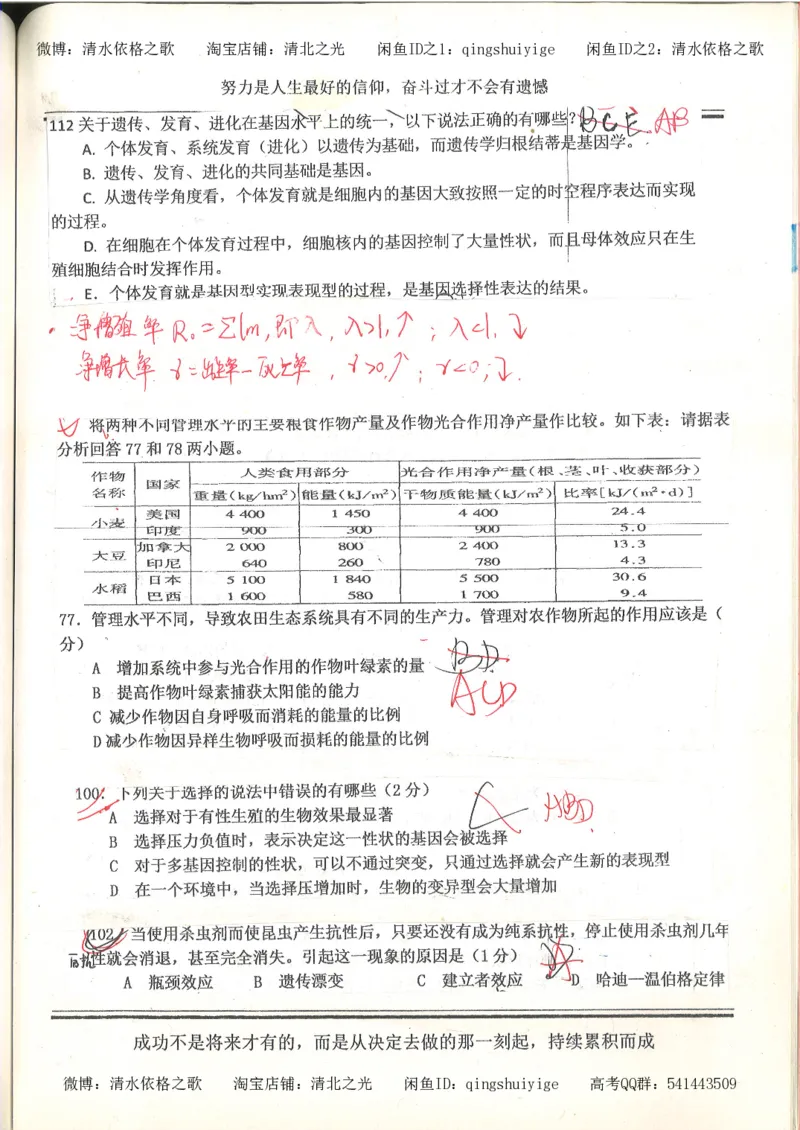 微博：清水依格之歌 淘宝店铺：清北之光 闲鱼ID之1：qingshuiyige 闲鱼ID之2：清水依格之歌
努力是人生最好的信仰，奋斗过才不会有遗憾
112 关于遗传、发育、进化在基因水平上的统一，以下说法正确的有哪些？ BCE AB
A. 个体发育、系统发育（进化）以遗传为基础，而遗传学归根结蒂是基因学。
B. 遗传、发育、进化的共同基础是基因。
C. 从遗传学角度看，个体发育就是细胞内的基因大致按照一定的时空程序表达而实现
的过程。
D. 在细胞在个体发育过程中，细胞核内的基因控制了大量性状，而且母体效应只在生
殖细胞结合时发挥作用。
E. 个体发育就是基因型实现表现型的过程，是基因选择性表达的结果。
净增殖率 R₀=Σlm,即λ, λ>1,↑; λ<1,↓
净增长率 r=出生率-死亡率, r>0,↑; r<0;↓.
将两种不同管理水平的主要粮食作物产量及作物光合作用净产量作比较。如下表：请据表
分析回答 77 和 78 两小题。
作物名称 国家 人类食用部分 光合作用净产量(根、茎、叶、收获部分)
重量(kg/hm²) 能量(kJ/m²) 干物质能量(kJ/m²) 比率[kJ/(m²·d)]
小麦 美国 4 400 1 450 4 400 24.4
印度 900 300 900 5.0
大豆 加拿大 2 000 800 2 400 13.3
印尼 640 260 780 4.3
水稻 日本 5 100 1 840 5 500 30.6
巴西 1 600 580 1 700 9.4
77. 管理水平不同，导致农田生态系统具有不同的生产力。管理对农作物所起的作用应该是（
分）
A 增加系统中参与光合作用的作物叶绿素的量 BD
B 提高作物叶绿素捕获太阳能的能力 ACD
C 减少作物因自身呼吸而消耗的能量的比例
D 减少作物因异样生物呼吸而损耗的能量的比例
100. 下列关于选择的说法中错误的有哪些（2 分）
A 选择对于有性生殖的生物效果最显著 C ABD
B 选择压力负值时，表示决定这一性状的基因会被选择
C 对于多基因控制的性状，可以不通过突变，只通过选择就会产生新的表现型
D 在一个环境中，当选择压增加时，生物的变异型会大量增加
102 当使用杀虫剂而使昆虫产生抗性后，只要还没有成为纯系抗性，停止使用杀虫剂几年
后抗性就会消退，甚至完全消失。引起这一现象的原因是（1 分）
A 瓶颈效应 B 遗传漂变 C 建立者效应 D 哈迪—温伯格定律
成功不是将来才有的，而是从决定去做的那一刻起，持续累积而成
微博：清水依格之歌 淘宝店铺：清北之光 闲鱼ID：qingshuiyige 高考QQ群：541443509